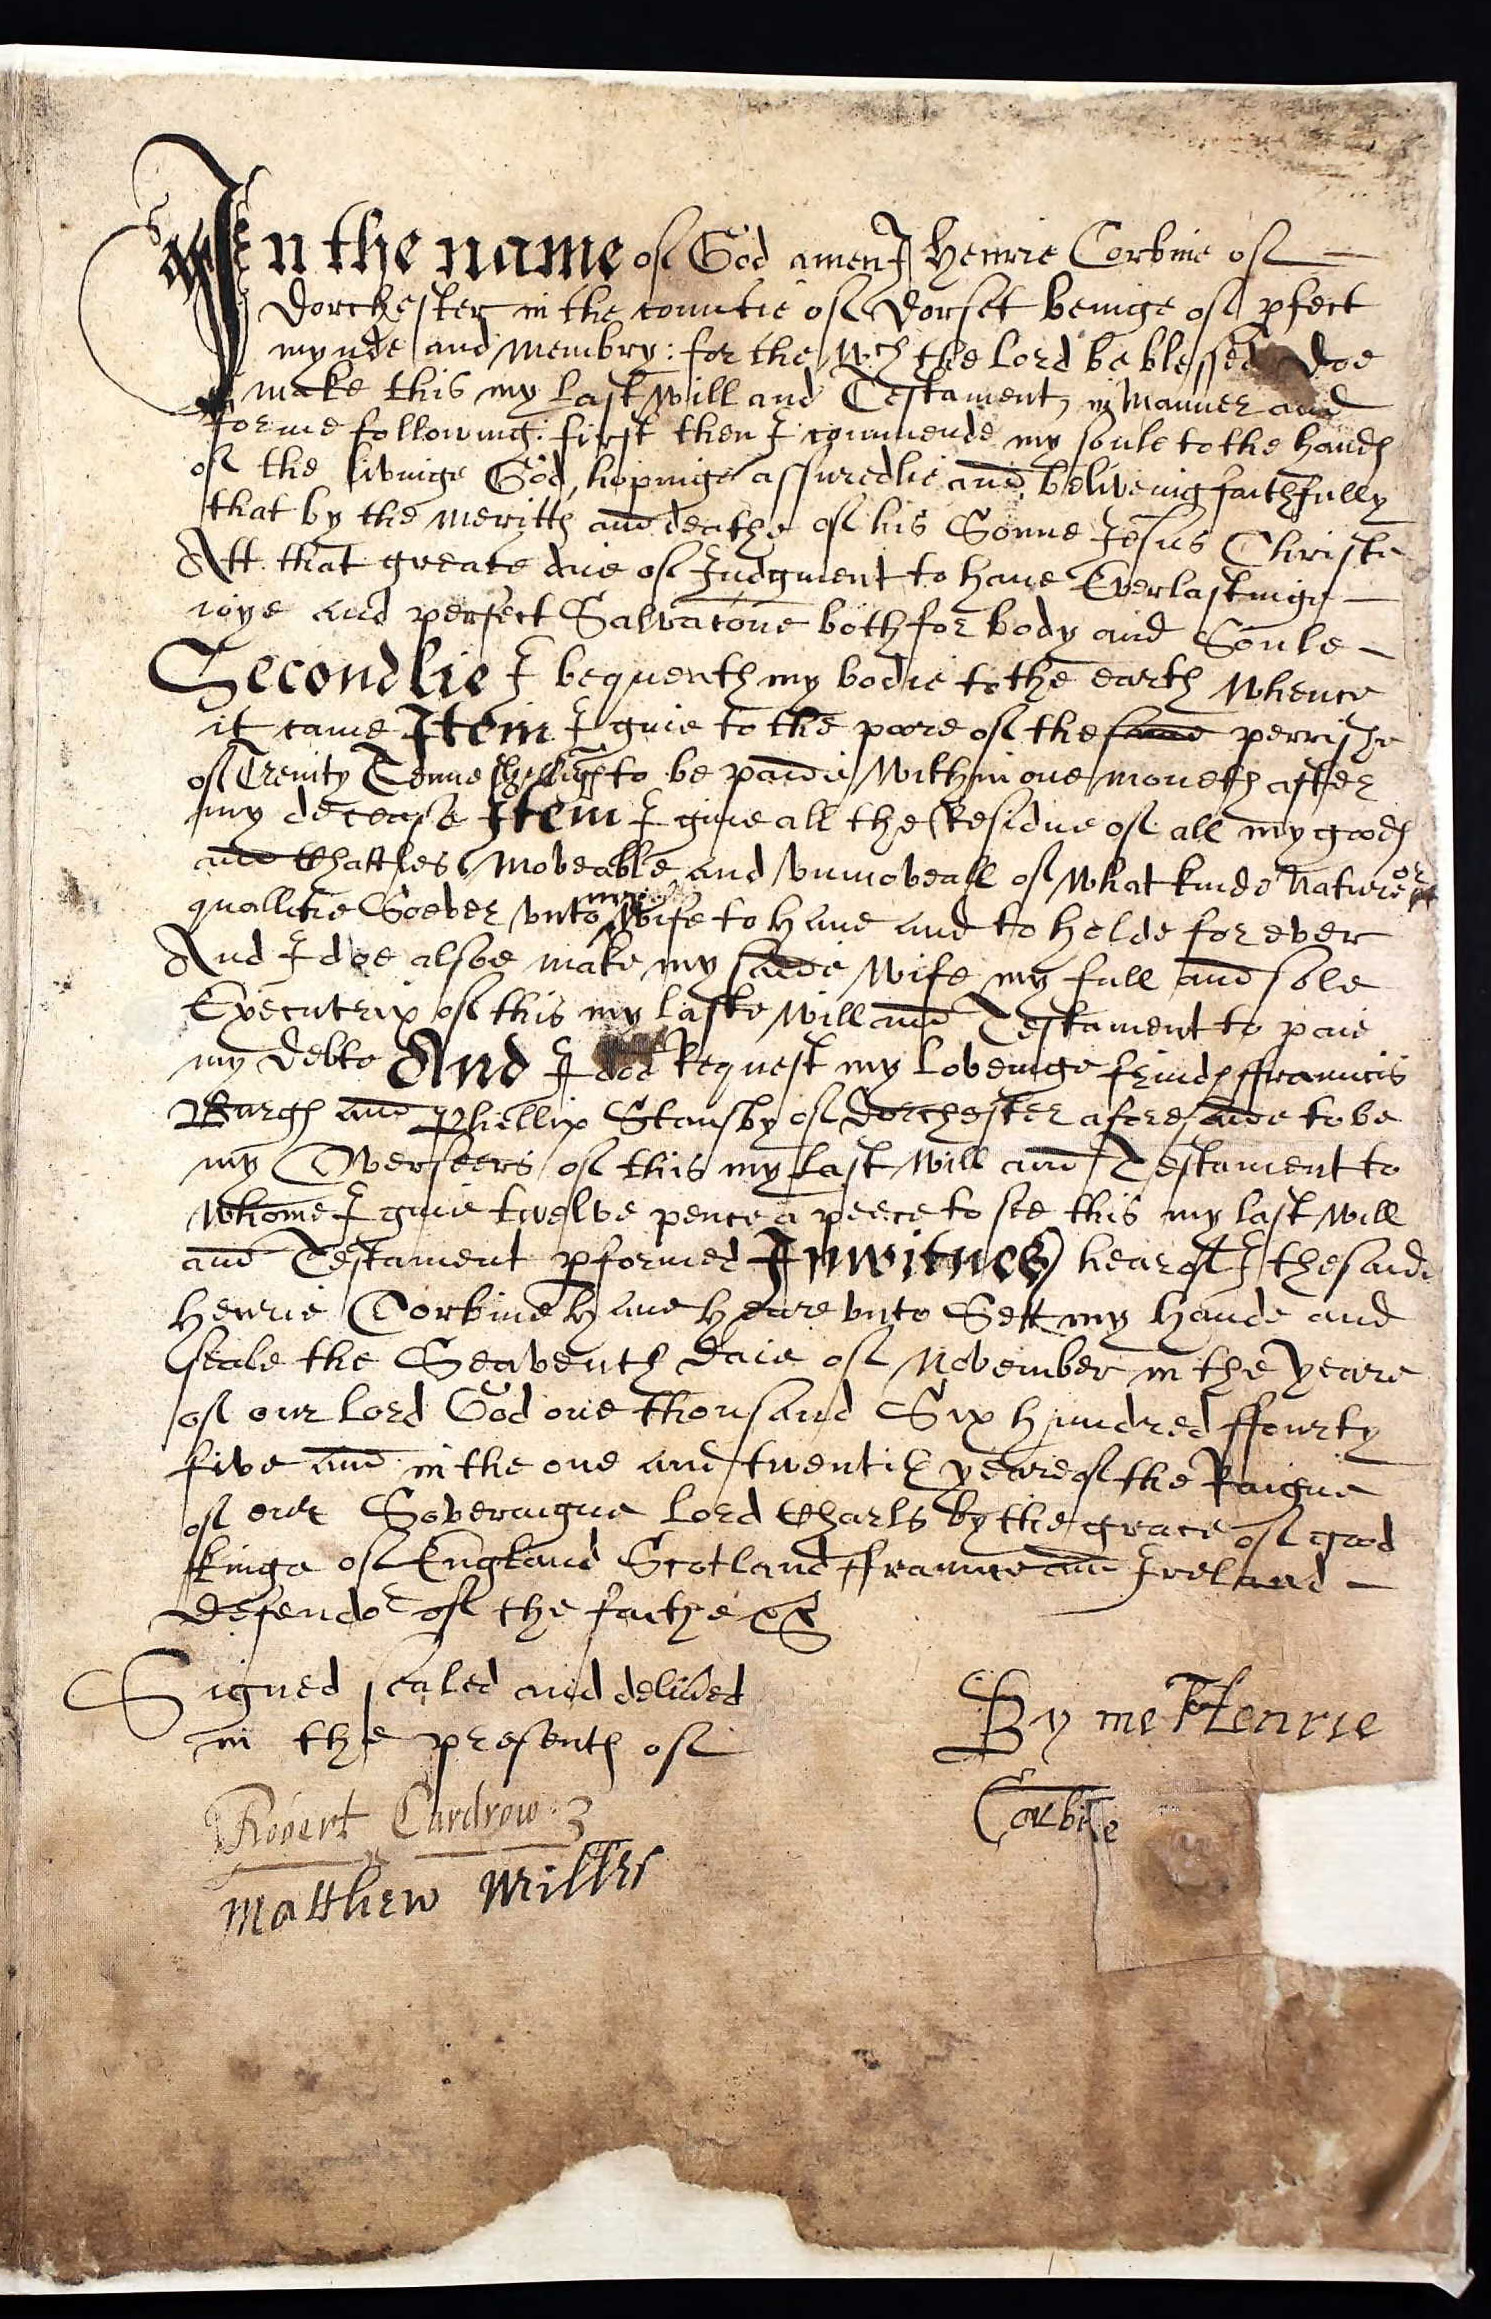 In the name of God amen I Henrie Corbine of
Dorchester in the countie of Dorset beinge of pfect
mynde and Membry: for the wch the Lord be blessed doe
make this my Last will and Testament, in Manner and
forme following: first then I commende my soule to the hands
of the livinge God, hopinge assuredlie and beliveing faithfully
that by the Meritts and deathe of his Sonne Jesus Christe
Att that greate daie of Judgment to have Everlastinge
ioye and perfect Salvacone both for body and Soule
Secondlie I bequeath my bodie to the earth Whence
it came Item I give to the poore of the perrishe
of Trenity Tenne shillings to be paide within one moneth after
my decease Item I give all the Residue of all my goods
and Chattles Moveable and Vnmoveall of What kinde Nature or
quallitie Soever vnto my Wife to Have and to holde for ever
And I doe alsoe make my saide Wife my full and sole
Executrix of this my laste Will and Testament to paie
my debts And I doe Request my Lovenge frinds ffrancis
Burgh and Phellip Stansby of Dorchester aforesaide to be
my Overseers of this my Last Will and Testament to
Whome I give twelve pence a peece to see this my last Will
and Testament pformed In witnes hearof I the saide
Henrie Corbine Have Heare vnto Sett my Hande and
seale the Seaventh daie of November in the yeare
of our Lord God one thousand Six Hundred ffourty
five and in the one and twentith yeare of the Raigne
of our Soveraigne Lord Charls by the grace of good
kinge of England Scotland ffraunce and Ireland
defendor of the faithe &c
Signed sealed and delived
in the presents of
By me Henrie
Corbine
Robert Cardrow
Matthew Miller